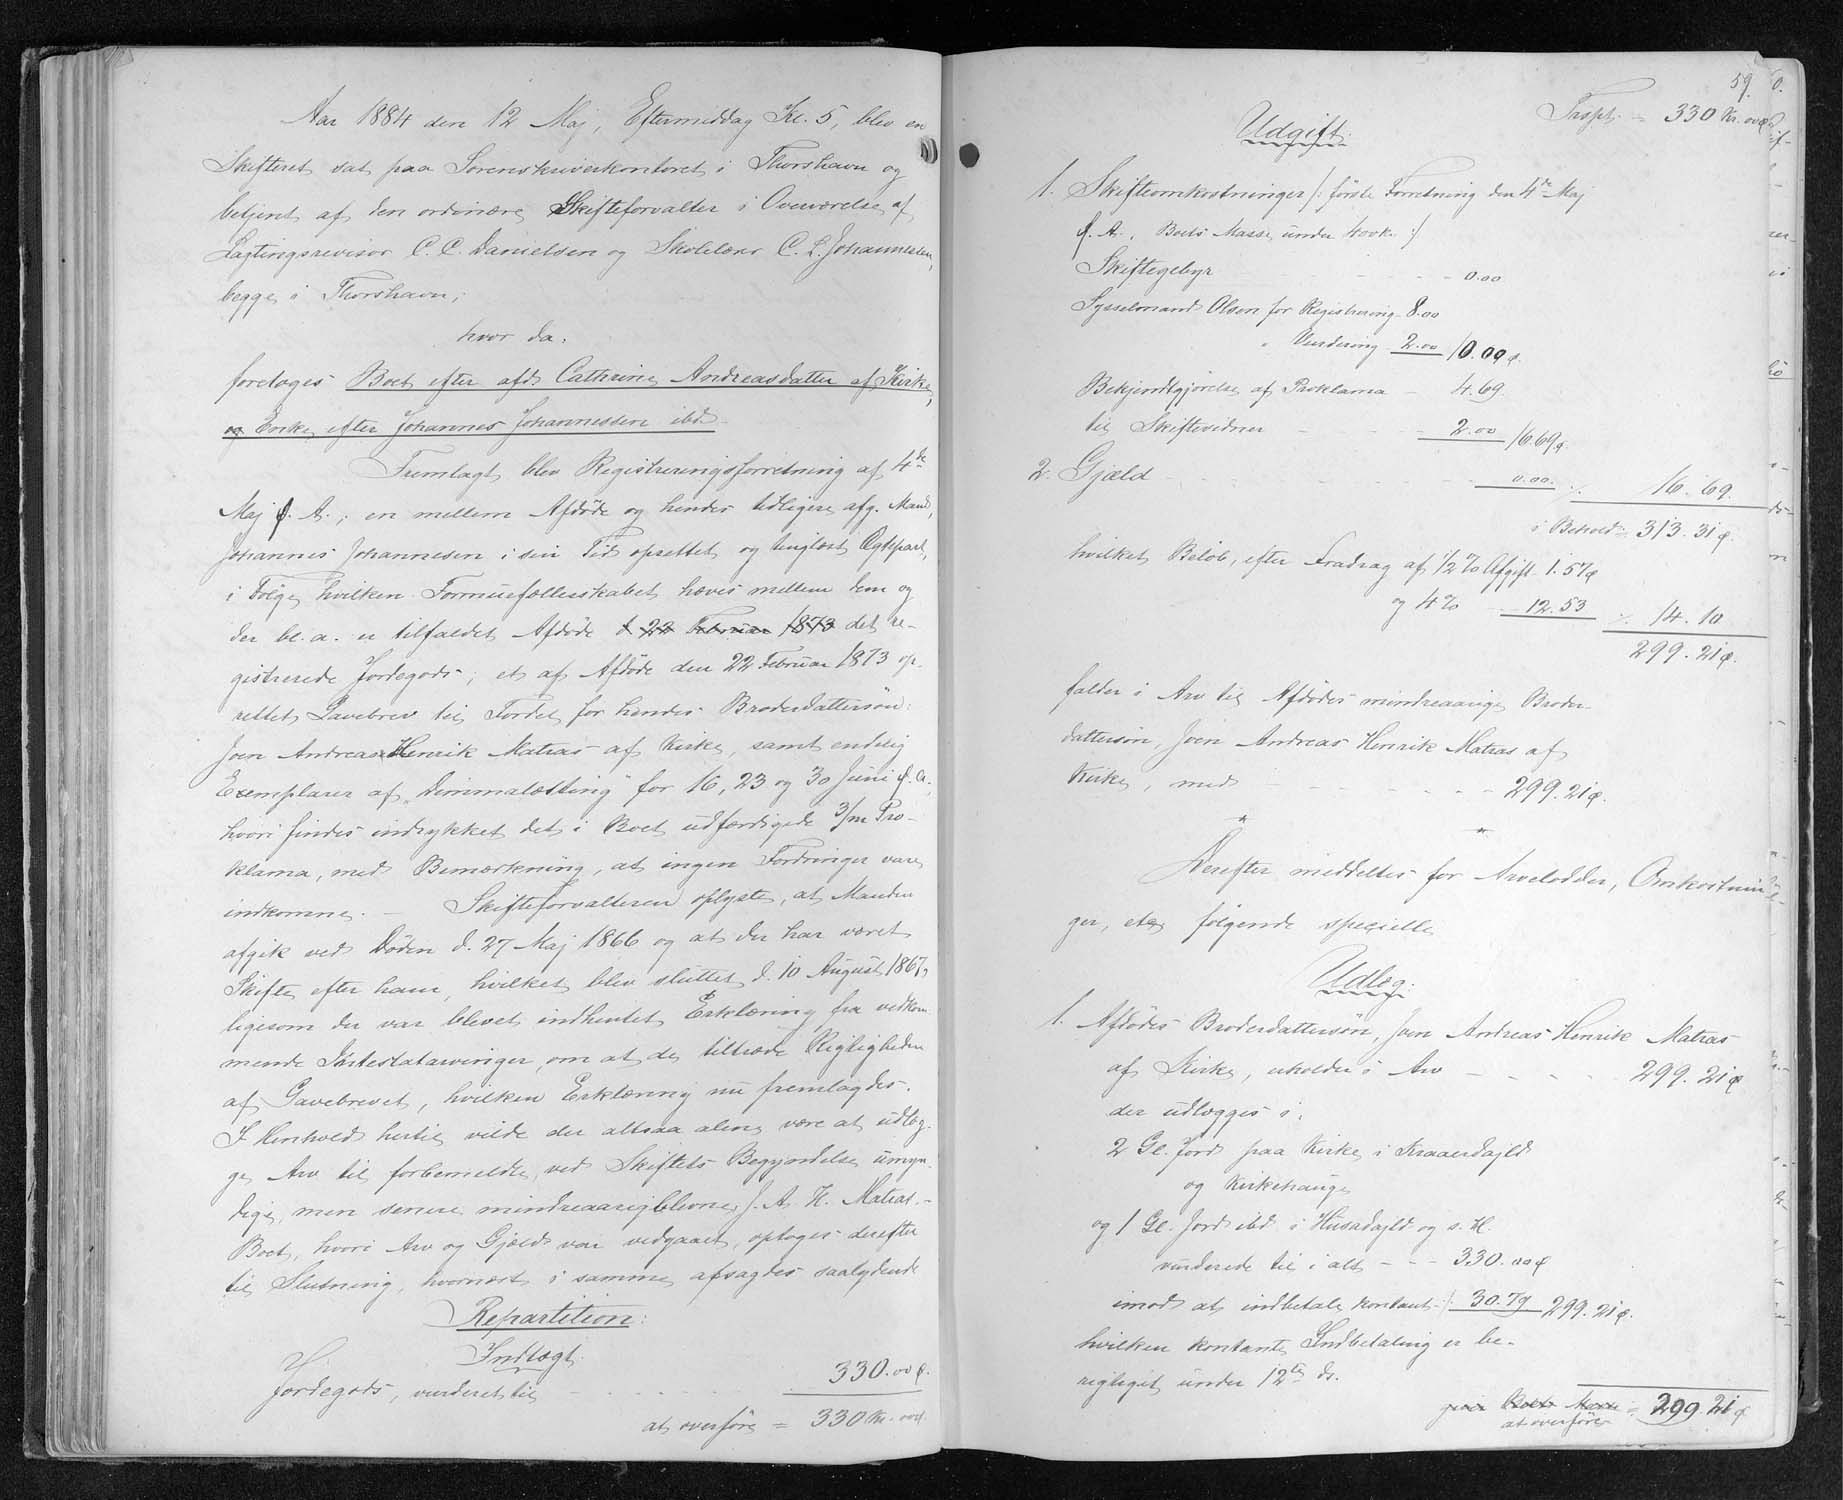 Aar 1884 den 12 Maj, Eftermiddag Kl. 5, blev en
Skifteret sat paa Sorenskriverkontoret i Thorshavn og
betjent af den ordinære Skifteforvalter i Overværelse af
Lagtingsrevisor C. C. Danielsen og Skolelærer C. L. Johannesen,
begge i Thorshavn;
hvor da:
foretoges Boet efter afd. Cathrine Andreasdatter af Kirke,
og Enke efter Johannes Johannessen ibd.
Fremlagt blev Registreringsforretning af 4de
Maj f. A.; en mellem Afdöde og hendes tidligere afg. Mand,
Johannes Johannesen i sin Tid oprettet og tinglæst Ægtepact,
i Fölge hvilken Formuefællesskabet hæves mellem dem og
der bl. a. er tilfaldet Afdöde d 22 Februar 1873 det re-
gistrerede Jordegods; et af Afdöde den 22 Februar 1873 op-
rettet Gavebrev til Fordel for hendes Broderdattersön:
Joen Andreas Henrik Matras af Kirke, samt endelig
Exemplarer af "Dimmalætting" for 16, 23 og 30 Juni f. A.,
hvori findes indrykket det i Boet udfærdigede 3/m Pro-
klama, med Bemærkning, at ingen Fordringer vare
indkomne. – Skifteforvalteren oplyste, at Manden
afgik ved Döden d. 27 Maj 1866 og at der har været
Skifte efter ham, hvilket blev sluttet d. 10 August 1867,
ligesom der var blevet indhentet Erklæring fra vedkom-
mende Intestatarvinger, om at de tiltræde Rigtigheden
af Gavebrevet, hvilken Erklæring nu fremlagdes.
I Henhold hertil vilde der altsaa alene være at udlæg-
ge Arv til forbemeldte, ved Skiftets Begyndelse umyn-
dige, men senere mindreaarigblevne J. A. H. Matras. –
Boet, hvori Arv og Gjæld var vedgaaet, optoges derefter
til Slutning, hvornæst i samme afsagdes saalydende
Repartition:
Indtægt.
Jordegods, vurderet til - - - - - 330.00 ø.
at overföre = 330 Kr. 00 ø.
59.
Trspt. = 330 Kr. 00 ø
Udgift:
1. Skifteomkostninger /: förste Forretning den 4de Maj
f. A., Boets Masse under 400 k. :/
Skiftegebyr - - - - 0.00
Sysselmand Olsen for Registrering - 8.00
" Vurdering - 2.00 10.00 ø.
Bekjendtgjörelse af Proklama - 4.69
til Skiftevidner - - - 2.00 6.69 ø.
2. Gjæld - - - - - 0.00. ./. 16.69.
i Behold = 313.31 ø.
hvilket Belöb, efter Fradrag af ½ % Afgift - 1.57 ø
og 4% - 12.53 ./. 14.10
299.21 ø.
falder i Arv til Afdödes mindreaarige Broder-
dattersön, Joen Andreas Henrik Matras af
Kirke, med - - - - - - 299.21 ø.
Derefter meddeltes for Arvelodder, Omkostnin-
ger, etc. fölgende specielle
Udlæg:
1. Afdödes Broderdattersön, Joen Andreas Henrik Matras
af Kirke, erholder i Arv - - - - 299.21 ø
der udlægges i:
2 Gl. Jord paa Kirke i
og Kirkehauge
og 1 Gl. Jord ibd. i Husadajld og s. H.
vurderede til i alt - - - 330.00 ø
imod at indbetale kontant ./. 30.79 299.21 ø.
hvilken kontante Indbetaling er be-
rigtiget under 12te ds.
299.21 ø
at overföre =